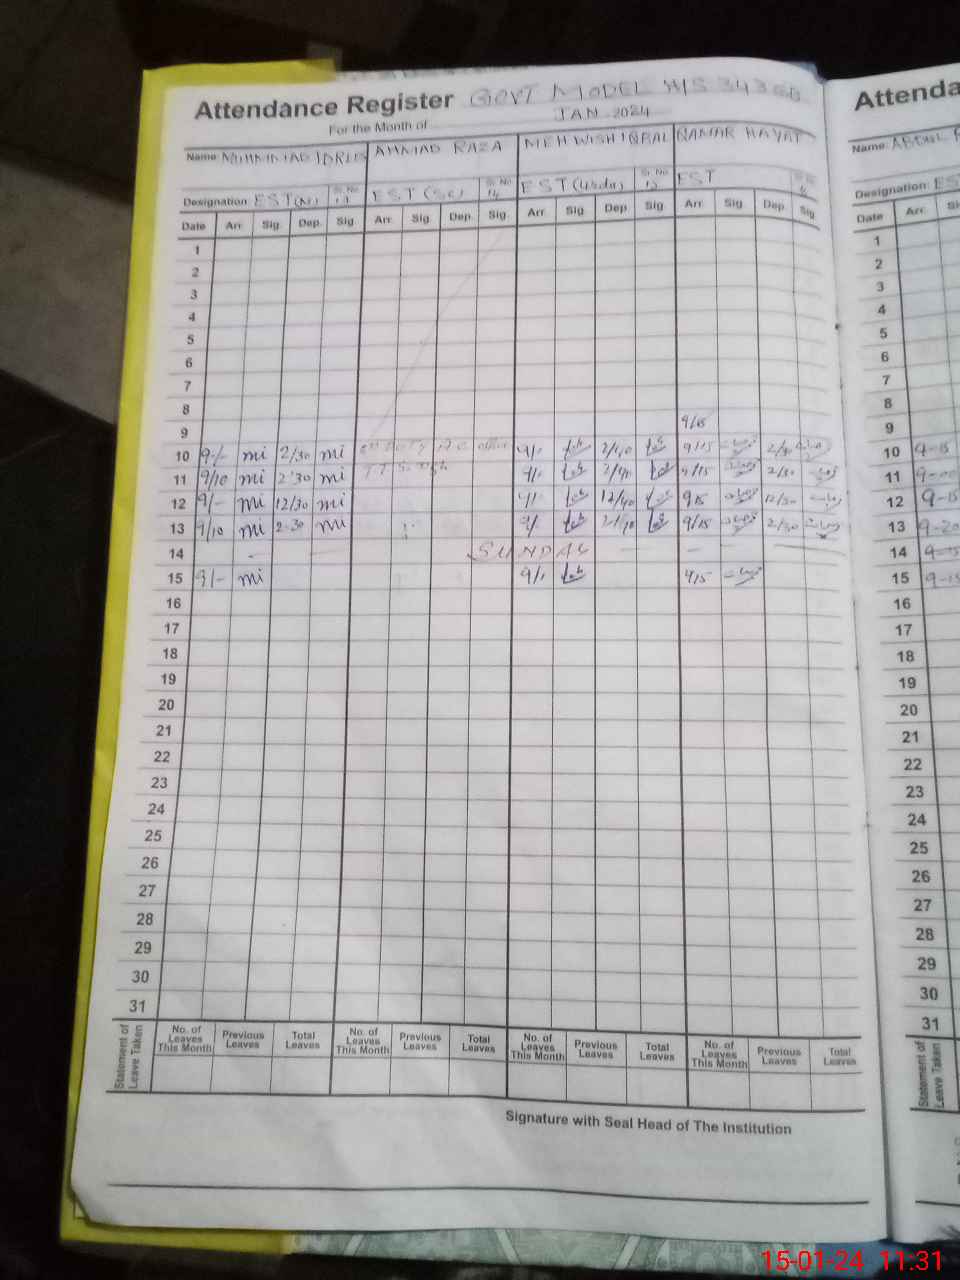 Attendance Register GOVT MODEL H/S 34360
For the Month of JAN 2024
Name: MUHMMAD IDREES AHMAD RAZA MEHWISH IQBAL NAMAR HAYAT
Designation: EST(M) Sr. No EST (Sc) Sr. No 14 EST (Urdu) Sr. No EST Sr. No
Date Arr. Sig. Dep. Sig. Arr. Sig. Dep. Sig. Arr. Sig. Dep. Sig. Arr. Sig. Dep. Sig.
1
2
3
4
5
6
7
8
9 9/15
10 9/- mi 2/30 mi 9/- 2/40 9/15 2/30
11 9/10 mi 2:30 mi 9/- 2/40 9/15 2/30
12 9/- mi 12/30 mi 9/- 12/40 9 15 12/30
13 9/10 mi 2-30 mi 9/ 2/40 9/15 2/30
14 SUNDAY
15 9/- mi 9/- 9/15
16
17
18
19
20
21
22
23
24
25
26
27
28
29
30
31
Statement of Leave Taken
No. of Leaves This Month Previous Leaves Total Leaves No. of Leaves This Month Previous Leaves Total Leaves No. of Leaves This Month Previous Leaves Total Leaves No. of Leaves This Month Previous Leaves Total Leaves
Signature with Seal Head of The Institution
Attenda
Name: ABDUL R
Designation: ES
Date Arr. Si
1
2
3
4
5
6
7
8
9
10 9-15
11 9-00
12 9-15
13 9-20
14
15 9-15
16
17
18
19
20
21
22
23
24
25
26
27
28
29
30
31
Statement of Leave Taken
15-01-24 11:31